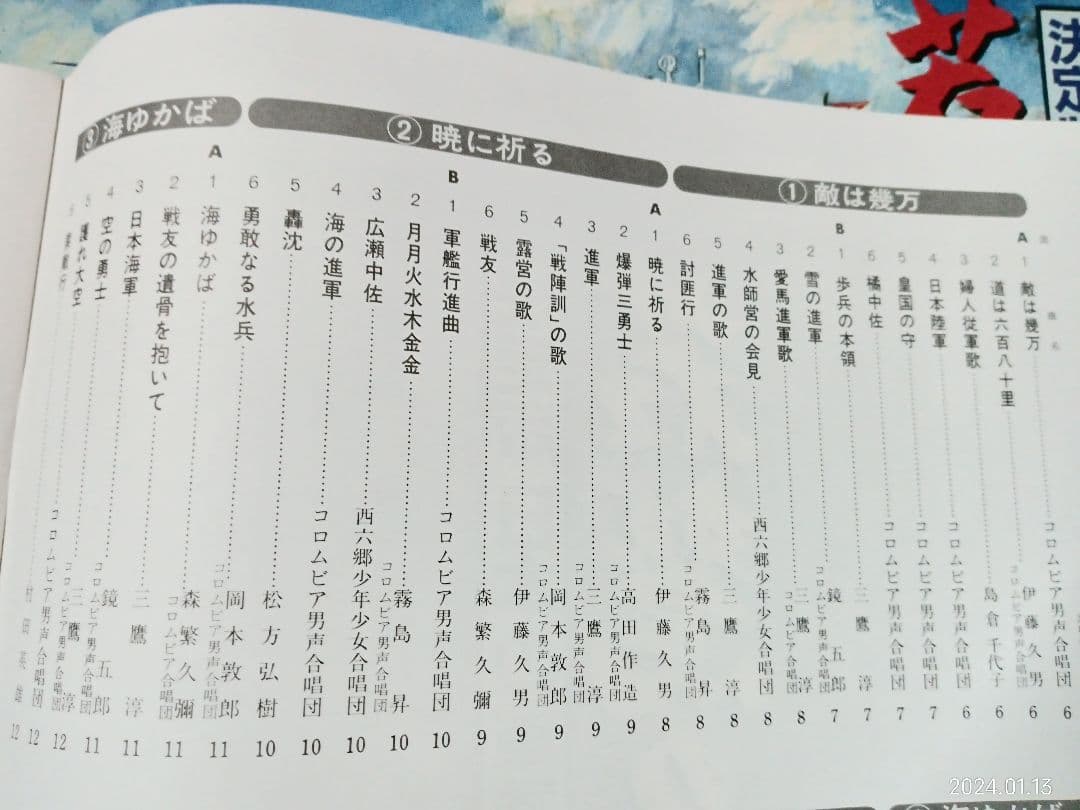 決定
若
① 敵は幾万
A
1 敵は幾万 コロムビア男声合唱団 6
2 道は六百八十里 伊藤久男 コロムビア男声合唱団 6
3 婦人従軍歌 島倉千代子 6
4 日本陸軍 コロムビア男声合唱団 6
5 皇国の守 コロムビア男声合唱団 7
6 橘中佐 コロムビア男声合唱団 7
B
1 歩兵の本領 三鷹淳 7
2 雪の進軍 鏡五郎 コロムビア男声合唱団 7
3 愛馬進軍歌 三鷹淳 コロムビア男声合唱団 8
4 水師営の会見 西六郷少年少女合唱団 8
5 進軍の歌 三鷹淳 8
6 討匪行 霧島昇 コロムビア男声合唱団 8
② 暁に祈る
A
1 暁に祈る 伊藤久男 8
2 爆弾三勇士 高田作造 コロムビア男声合唱団 9
3 進軍 三鷹淳 コロムビア男声合唱団 9
4 「戦陣訓」の歌 岡本敦郎 コロムビア男声合唱団 9
5 露営の歌 伊藤久男 9
6 戦友 森繁久彌 9
B
1 軍艦行進曲 コロムビア男声合唱団 10
2 月月火水木金金 霧島昇 コロムビア男声合唱団 10
3 広瀬中佐 西六郷少年少女合唱団 10
4 海の進軍 コロムビア男声合唱団 10
5 轟沈 松方弘樹 10
6 勇敢なる水兵 岡本敦郎 コロムビア男声合唱団 11
③ 海ゆかば
A
1 海ゆかば 森繁久彌 コロムビア合唱団 11
2 戦友の遺骨を抱いて 三鷹淳 11
3 日本海軍 鏡五郎 コロムビア男声合唱団 11
4 空の勇士 三鷹淳 コロムビア男声合唱団 12
5 護れ大空 コロムビア男声合唱団 12
村田英雄 12
2024.01.13